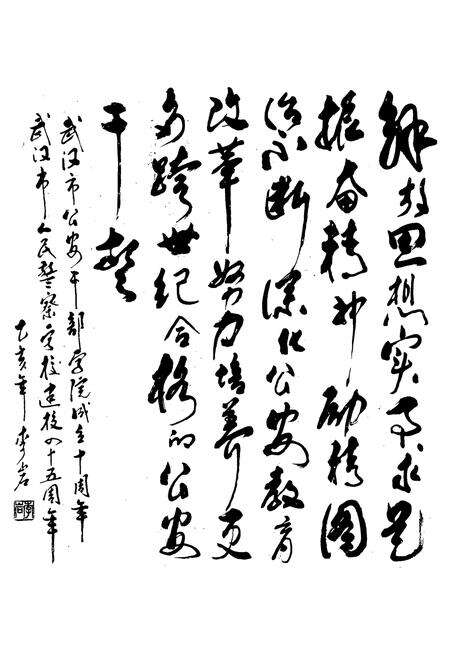 解放思想实事求是
振奋精神励精图
治不断深化公安教育
改革努力培养更
多跨世纪合格的公安
干警
武汉市公安干部学院成立十周年
武汉市人民警察学校建校四十五周年
乙亥年李岩